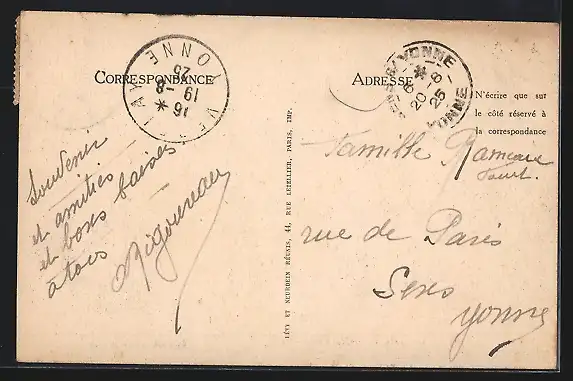 CORRESPONDANCE
ADRESSE
N'écrire que sur
le côté réservé à
la correspondance
YONNE
16 *
19 - 8
25
YONNE
*
6
20 - 8
25
YONNE
Souvenir
et amitiés
et bons baisers
à tous
Rigoureau
Famille Rameau
rue de Paris
Sens
Yonne
LÉVY ET NEURDEIN RÉUNIS, 44, RUE LETELLIER, PARIS, IMP.